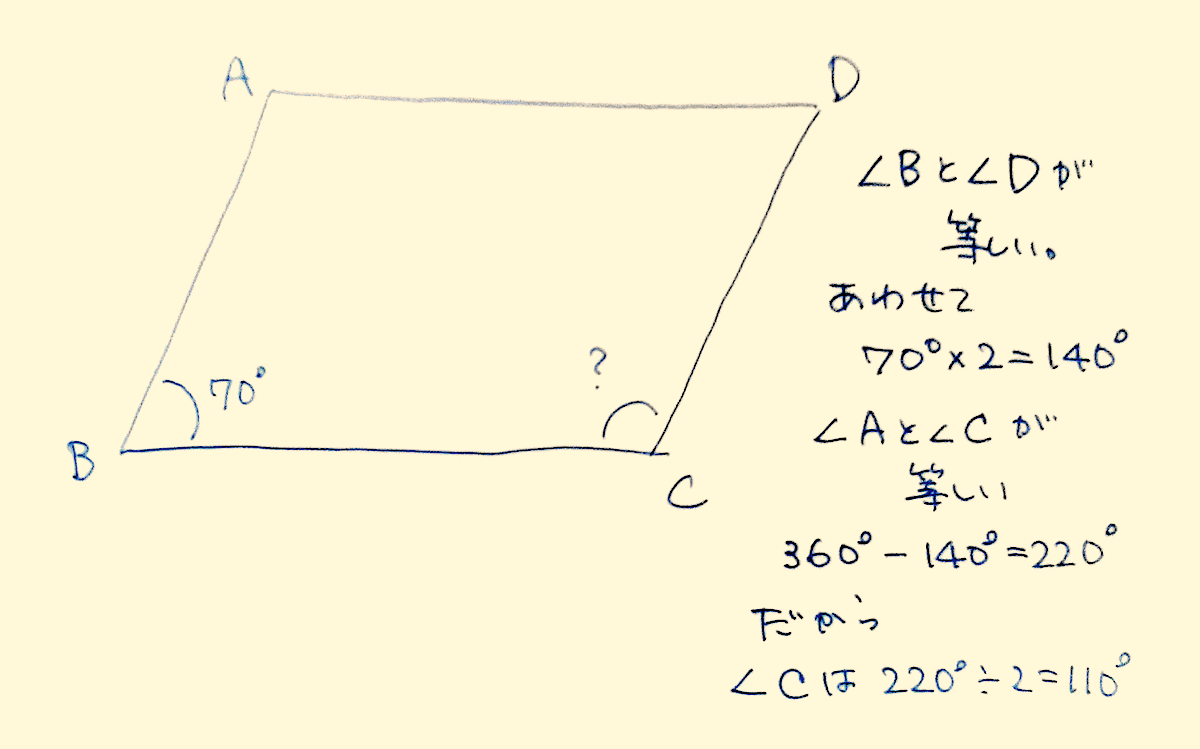 A
D
∠Bと∠Dが
等しい。
あわせて
70°×2=140°
?
70°
∠Aと∠Cが
B
等しい
C
360°-140°=220°
だから
∠Cは 220°÷2=110°